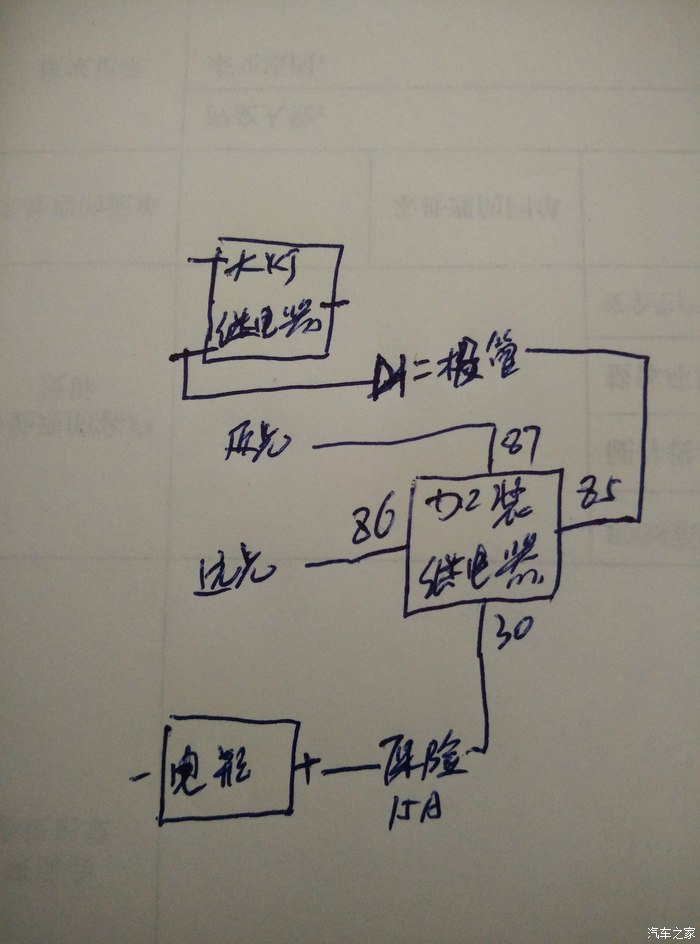 大灯
继电器
二极管
近光
87
86
加装
85
远光
继电器
30
- 电瓶 +
保险
15A
汽车之家